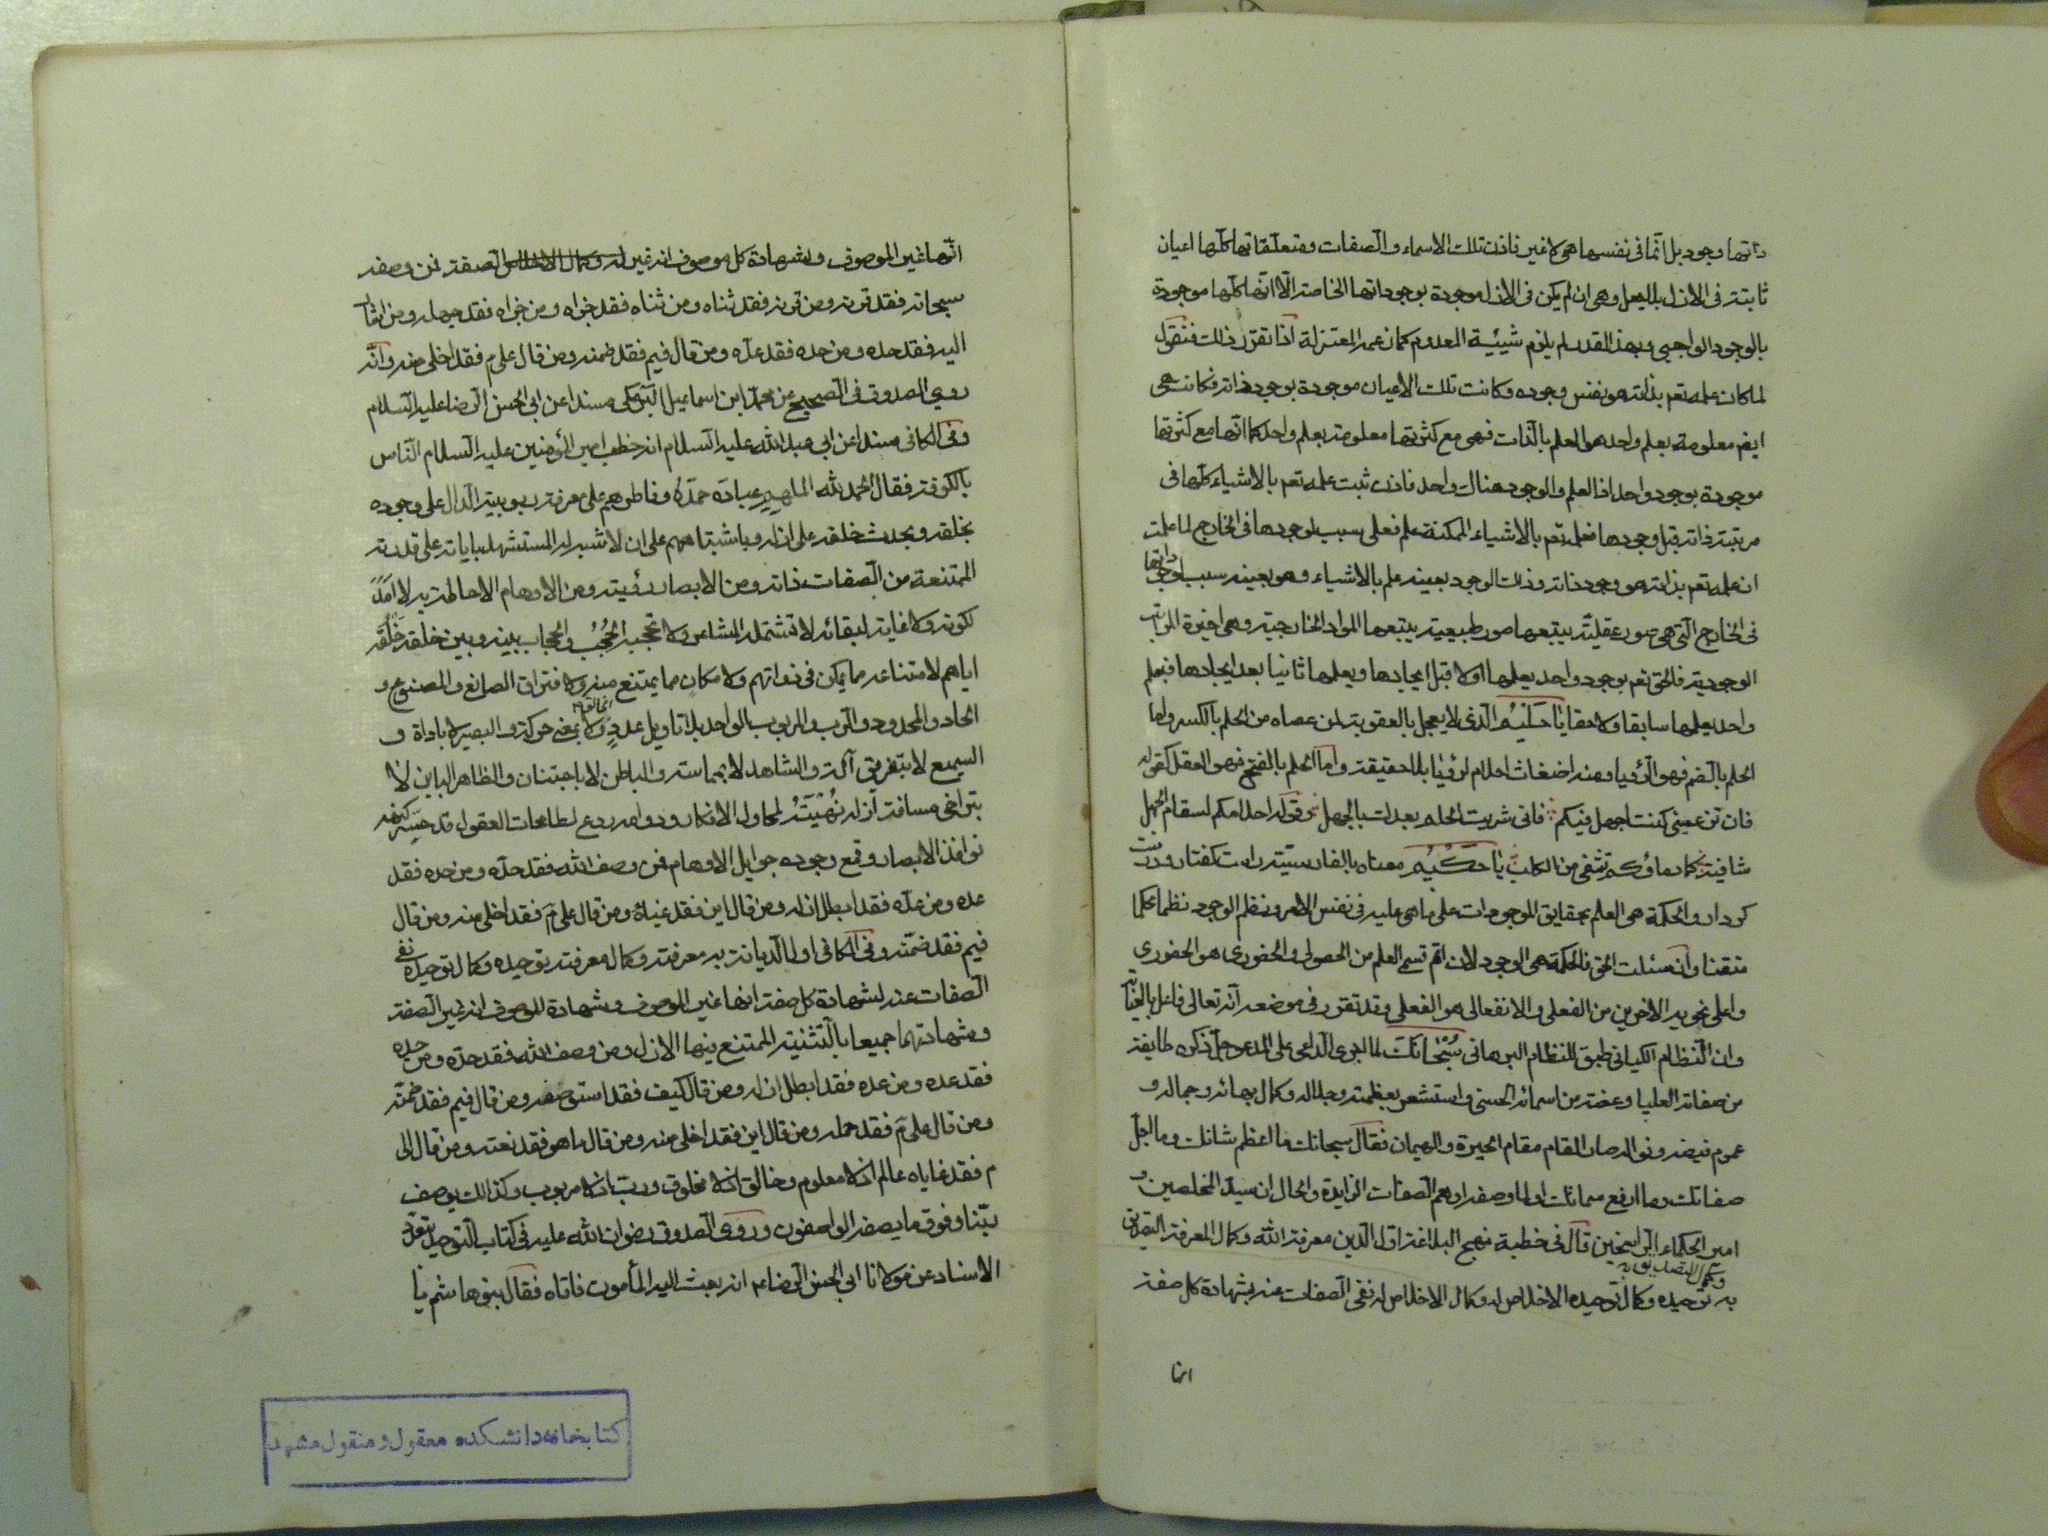 ذاتها وجود بل انّما فى نفسها هى لا غير فاذن تلك الاسماء و الصفات و متعلقاتها كلها اعيان
ثابتة فى الازل بلا جعل وهى ان لم يكن فى الازل موجودة بوجوداتها الخاصة الّا انّها كلّها موجودة
بالوجود الواجبى وبهذا القدر لم يلزم شيئية المعدوم كما زعمه المعتزلة اذا تقرّر ذلك فنقول
لما كان علمه تعم بذاته هو نفس وجوده وكانت تلك الاعيان موجودة بوجود ذاته فكانت هى
ايضم معلومة بعلم واحد هو العلم بالذات فهى مع كثرتها معلومة بعلم واحد كما انّها مع كثرتها
موجودة بوجود واحد اذ العلم والوجود هناك واحد فاذن ثبت علمه تعم بالاشياء كلّها فى
مرتبة ذاته قبل وجودها فعلمه تعم بالاشياء الممكنة علم فعلى سبب لوجودها فى الخارج لما علمت
ان علمه تعم بذاته هو وجود ذاته وذلك الوجود بعينه علم بالاشياء وهو بعينه سبب لوجوداتها
فى الخارج الّتى هى صور عقليّة يتبعها صور طبيعية يتبعها المواد الخارجية وهى اخيرة المراتب
الوجودية فالحق تعم بوجود واحد يعلمها اولا قبل ايجادها ويعلمها ثانيا بعد ايجادها فبعلم
واحد يعلمها سابقا ولاحقا يا حَليم الّذى لا يعجل بالعقوبة لمن عصاه من الحلم بالكسر واما
الحلم بالضم فهو الرّؤيا ومنه اضغاث احلام لرؤيا بلا حقيقة واما الحلم بالفتح فهو العقل كقوله
فان تزعمينى كنت اجهل فيكم فانى شريت الحلم بعدك بالجهل وقوله احلامكم لسقام الجهل
شافية كما دماؤكم تشفى من الكلب يا حكيم معناه بالفارسيّة راست كفتار و درست
كردار والحكمة هى العلم بحقايق الموجودات على ما هى عليه فى نفس الامر ونظم الوجود نظما محكما
متقنا وان سئلت الحق فالحكمة هى الوجود لان اتم قسمى العلم من الحصولى والحضورى هو الحضورى
واعلى نحويه الاخرين من الفعلى والانفعالى هو الفعلى وقد تقرر فى موضعه انّه تعالى فاعل بالعناية
وان النّظام الكيانى طبق للنظام الربانى سُبْحانَكَ لما اجرى الداعى على المدعو جلّ ذكره طايفة
من صفاته العليا وعضة من اسمائه الحسنى واستشعر بعظمته وجلاله وكمال بهائه وجماله و
عموم فيضه ونواله صار المقام مقام الحيرة والهيمان فقال سبحانك ما اعظم شانك وما اجلّ
صفاتك وما ارفع سماتك اولما وصفه اوهم الصفات الزايدة والحال ان سيد المخلصين و
امير الحكماء الراسخين قال فى خطبة نهج البلاغة اوّل الدّين معرفة الله وكمال المعرفة التصديق
وكمال التصديق به
به توحيده وكمال توحيده الاخلاص له وكمال الاخلاص له نفى الصفات عنه بشهادة كل صفة
انها
انّها غير الموصوف وشهادة كل موصوف انه غير الصفة فمن وصفه
سبحانه فقد قرنه ومن قرنه فقد ثناه ومن ثناه فقد جزاه ومن جزاه فقد جهله ومن اشار
اليه فقد حده ومن حده فقد عدّه ومن قال فيم فقد ضمنه ومن قال على م فقد اخلى منه وانّه
روى الصدوق فى الصحيح عن محمّد ابن اسماعيل البرمكى مسندا عن ابى الحسن الرّضا عليه السّلام
وفى الكافى مسندا عن ابى عبد الله عليه السّلام انه خطب امير المؤمنين عليه السّلام النّاس
بالكوفة فقال الحمد لله الملهم عباده حمدَهُ وفاطرهم على معرفة ربوبيته الدّال على وجوده
بخلقه وبحدث خلقه على ازله وباشتباههم على ان لا شبه له المستشهد باياته على قدرته
الممتنعة من الصفات ذاته ومن الابصار رؤيته ومن الاوهام الاحاطة به لا امَدَ
لكونه ولا غاية لبقائه لا تشتمله المشاعر ولا تحجبه الحُجُبُ والحجاب بينه وبين خلقه خَلْقُه
اياهم لامتناعه مما يمكن فى ذواتهم ولامكان مما يمتنع منه ولافتراق الصانع والمصنوع و
الحاد والمحدود والرّب والمربوب الواحد بلا تاويل عددٍ ولا بمعنى حركة والبصير لا باداة و
السميع لا بتفريق آلة والشاهد لا بمماسة والباطن لا باجتنان والظاهر الباين لا
بتراخى مسافة ازله نُهْيَتهُ لمحاول الافكار ودوامه ردع لطامحات العقول قد حسر كنهه
نوافذ الابصار وقمع وجوده جوايل الاوهام فمن وصف الله فقد حدّه ومن حده فقد
عده ومن عدّه فقد ابطل ازله ومن قال اين فقد غياه ومن قال على مَ فقد اخلى منه ومن قال
فيم فقد ضمّنه وفى الكافى اول الديانة به معرفته وكمال معرفته توحيده وكمال توحيده نفى
الصفات عنه لشهادة كل صفة انها غير الموصوف وشهادة الموصوف انه غير الصفة
وشهادتهما جميعا بالتثنية الممتنع منها الازل ومن وصف الله فقد حدّه ومن حده
فقد عده ومن عده فقد ابطل ازله ومن قال كيف فقد استوصفه ومن قال فيم فقد ضمّنه
ومن قال على مَ فقد حمله ومن قال اين فقد اخلى منه ومن قال ما هو فقد نعته ومن قال الى
م فقد غاياه عالم اذ لا معلوم وخالق اذ لا مخلوق وربّ اذ لا مربوب وكذلك يوصف
ربّنا وفوق ما يصفه الواصفون وروى الصدوق رضوان الله عليه فى كتاب التوحيد
الاسناد عن مولانا ابى الحسن الرضا عم انه بعث اليه المأمون فاتاه فقال بنو هاشم يا
كتابخانه دانشكده معقول و منقول مشهد